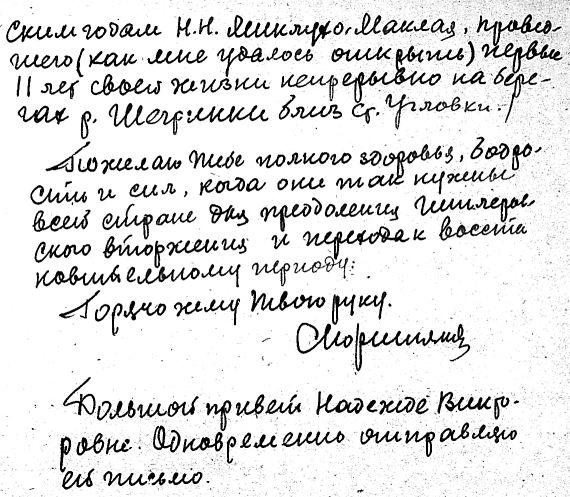 ским годам Н.Н. Миклухо-Маклая, провед-
шего (как мне удалось открыть) первые
11 лет своей жизни непрерывно на бере-
гах р. Шегринки близ ст. Угловки.)
Пожелаю тебе полного здоровья, бодро-
сти и сил, когда они так нужны
всей стране для преодоления гитлеров-
ского вторжения и перехода к восста-
новительному периоду.
Горячо жму твою руку.
Большой привет Надежде Викто-
ровне. Одновременно отправляю
ей письмо.